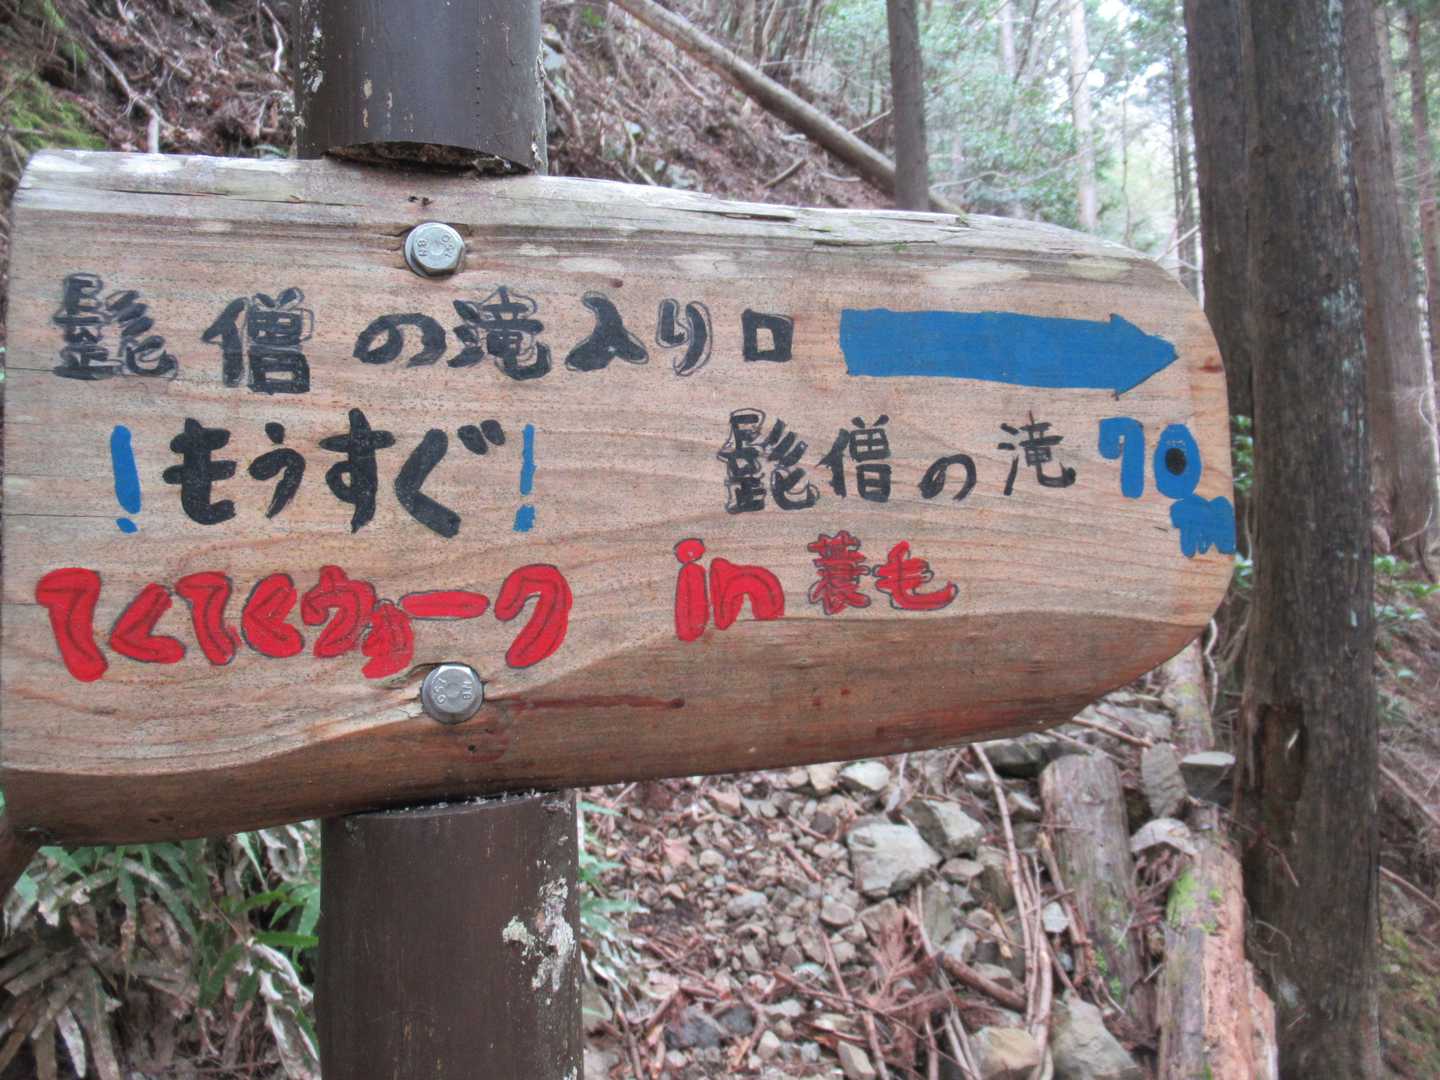 髭僧の滝入り口
!もうすぐ! 髭僧の滝 70m
てくてくウォーク in 蓑毛